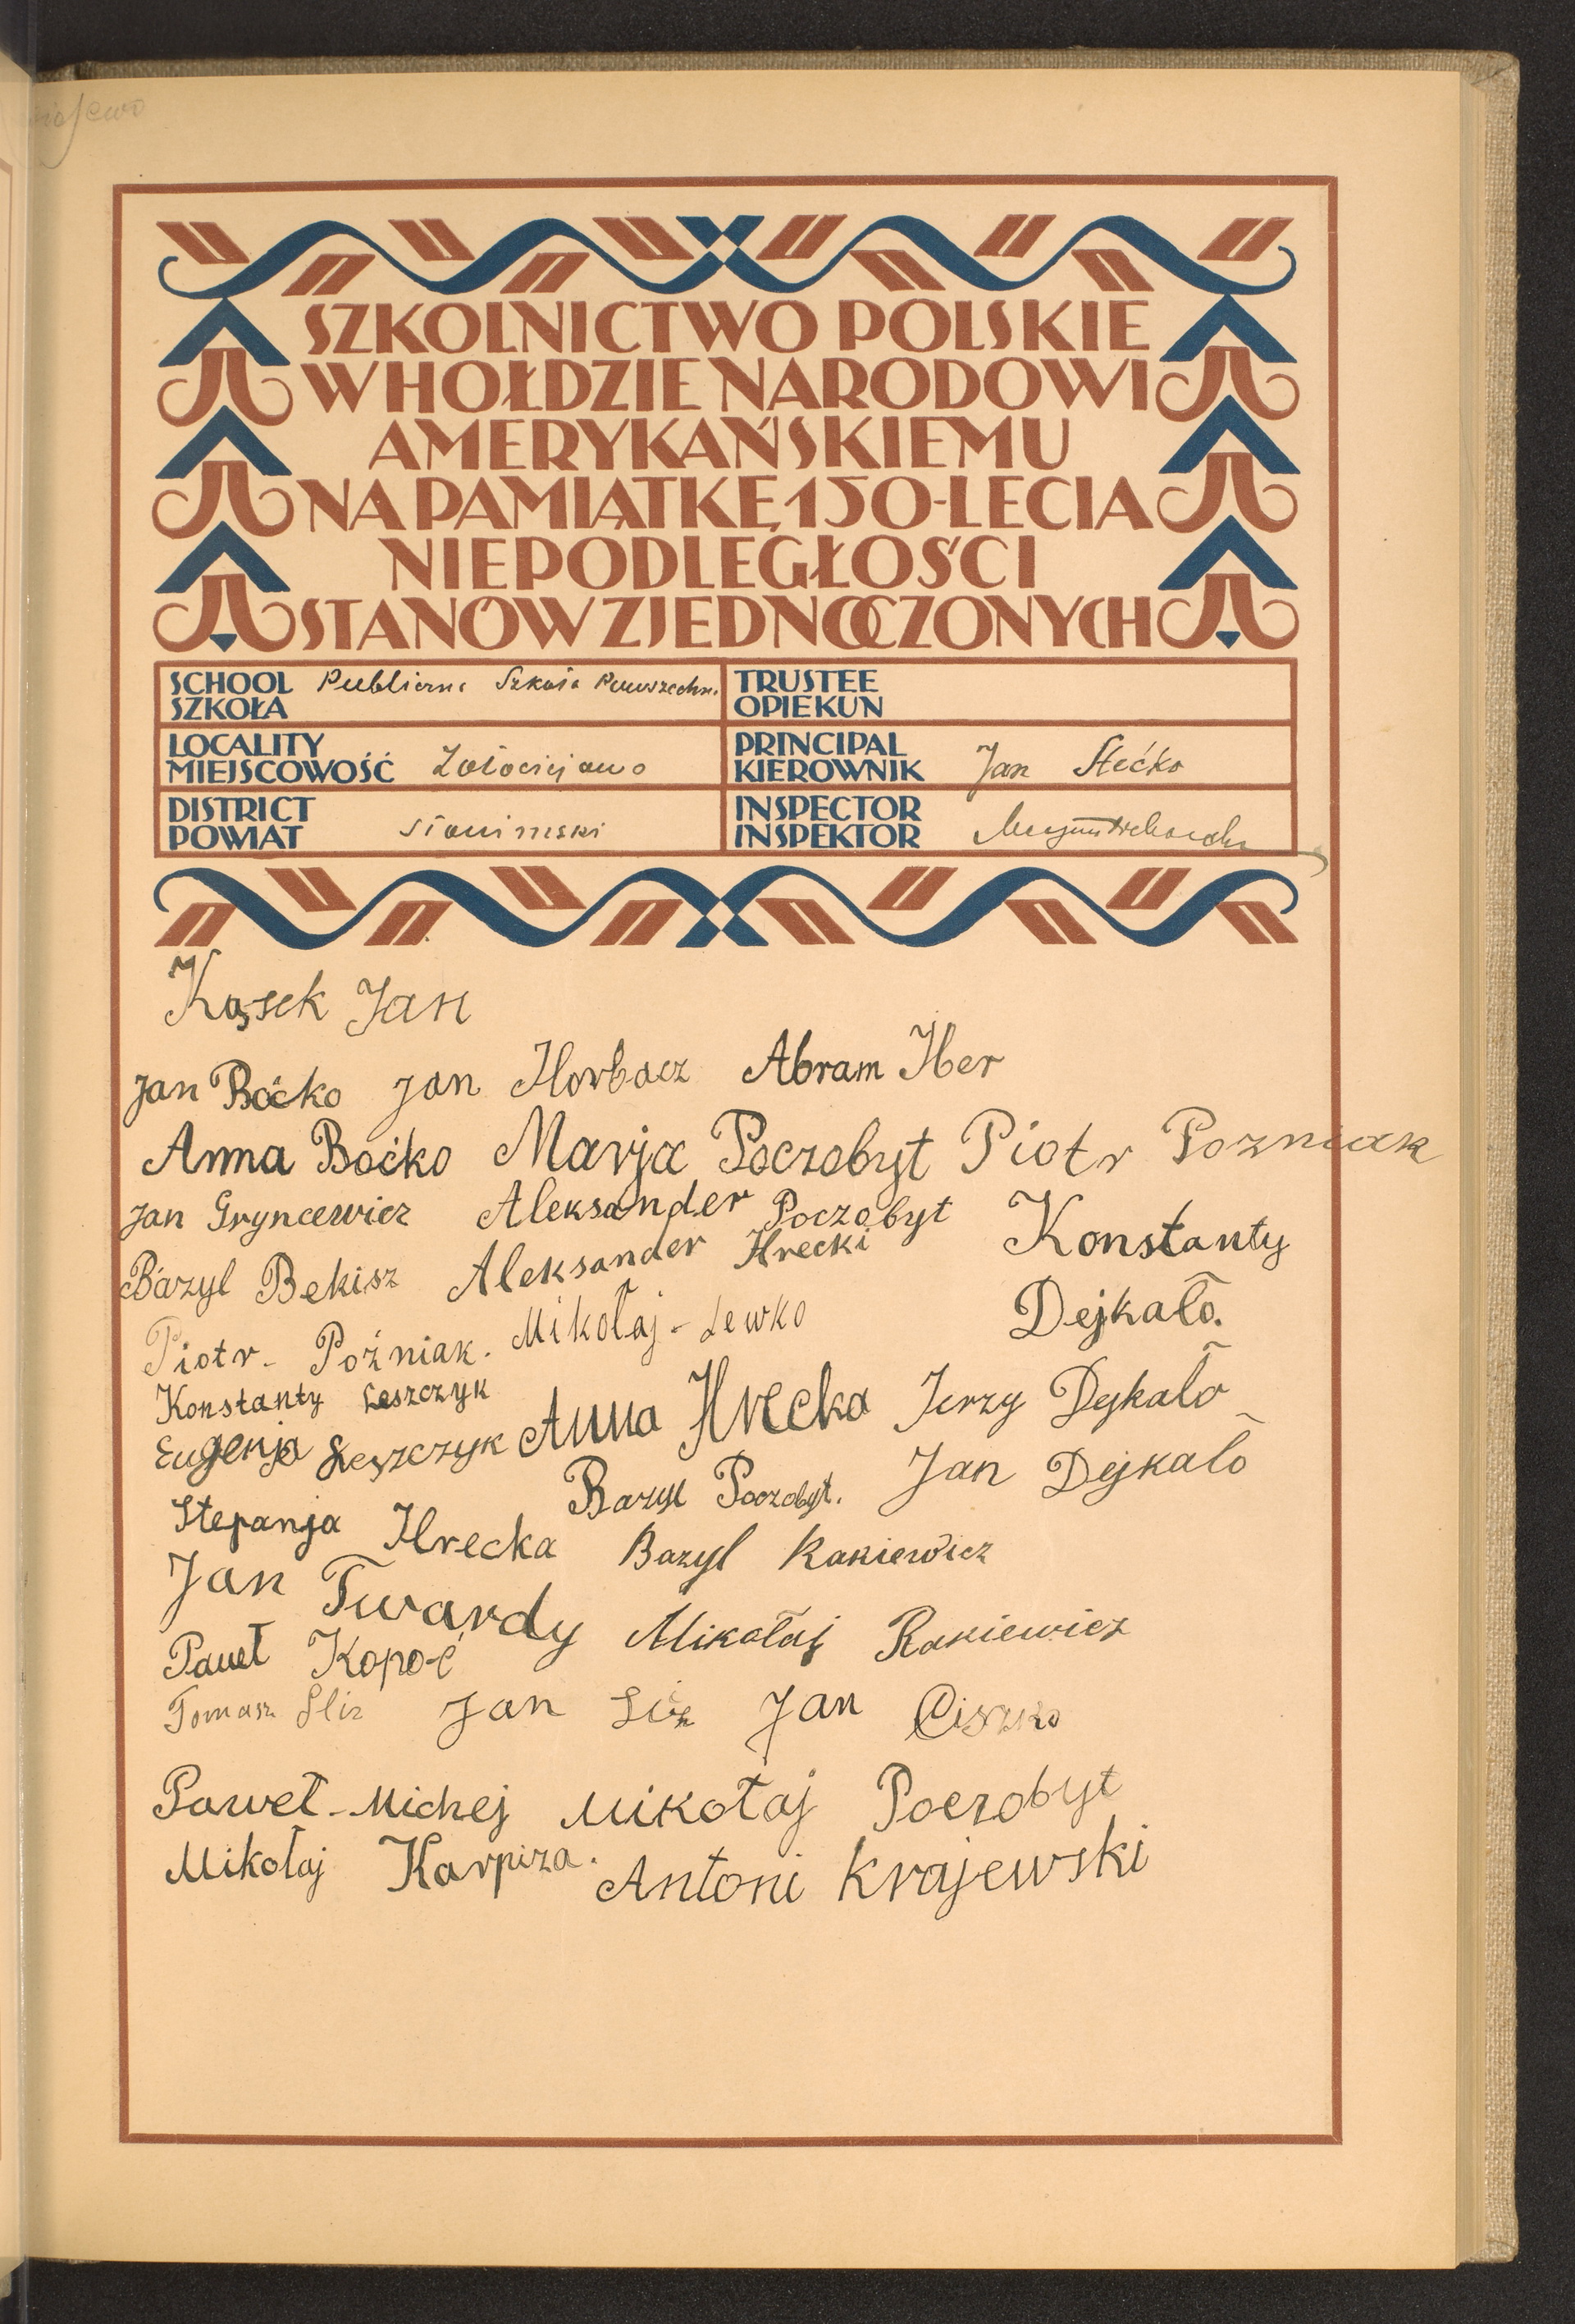 SZKOLNICTWO POLSKIE
W HOŁDZIE NARODOWI
AMERYKAŃSKIEMU
NA PAMIĄTKĘ 150-LECIA
NIEPODLEGŁOŚCI
STANÓW ZJEDNOCZONYCH
SCHOOL
SZKOŁA
Publiczna Szkoła Powszechn.
TRUSTEE
OPIEKUN
LOCALITY
MIEJSCOWOŚĆ
PRINCIPAL
KIEROWNIK
Jan Stećko
DISTRICT
POWIAT
słonimski
INSPECTOR
INSPEKTOR
Kąsek Jan
Jan Boćko Jan Horbacz Abram Iber
Anna Boćko Marja Poczobyt Piotr Pozniak
Jan Gryncewicz Aleksander Poczobyt
Konstanty
Bazyl Bekisz Aleksander Hrecki
Dejkało.
Piotr - Poźniak. Mikołaj - Lewko
Konstanty Leszczyk
Eugenja Leszczyk Anna Hrecka Jerzy Dejkało
Bazyl Poczobyt. Jan Dejkało
Stepanja Hrecka Bazyl Rakiewicz
Jan Twardy Mikołaj Rakiewicz
Paweł Kopoć
Tomasz Śliz Jan Liz Jan Ciszko
Paweł - Michej Mikołaj Poczobyt
Mikołaj Karpiza. Antoni Krajewski